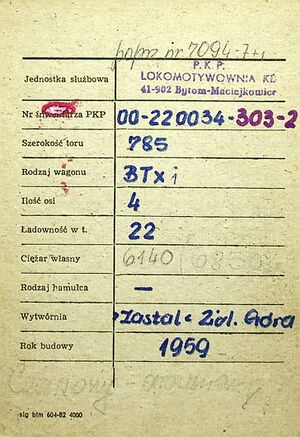 nr 7094-7+1
P.K.P.
Jednostka służbowa LOKOMOTYWOWNIA KL
41-902 Bytom-Maciejkowice
Nr inwentarza PKP 00-220034-303-2
Szerokość toru 785
Rodzaj wagonu BTxi
Ilość osi 4
Ładowność w t. 22
Ciężar własny 6140 (6850)
Rodzaj hamulca —
Wytwórnia „Zastal" Ziel. Góra
Rok budowy 1959
stg btm 604-82 4000